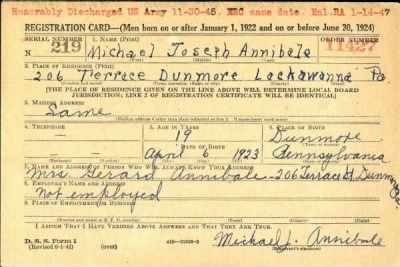 Honorably Discharged US Army 11-30-45. ERC same date. Enl. RA 1-14-47
REGISTRATION CARD—(Men born on or after January 1, 1922 and on or before June 30, 1924)
SERIAL NUMBER 1. NAME (Print) ORDER NUMBER
N 219 Michael Joseph Annibale 11427
(First) (Middle) (Last)
2. PLACE OF RESIDENCE (Print)
206 Terrace Dunmore Lackawanna Pa
[THE PLACE OF RESIDENCE GIVEN ON THE LINE ABOVE WILL DETERMINE LOCAL BOARD
JURISDICTION; LINE 2 OF REGISTRATION CERTIFICATE WILL BE IDENTICAL]
3. MAILING ADDRESS
Same
4. TELEPHONE 5. AGE IN YEARS 6. PLACE OF BIRTH
19 Dunmore
DATE OF BIRTH
April 6 1923 Pennsylvania
7. NAME AND ADDRESS OF PERSON WHO WILL ALWAYS KNOW YOUR ADDRESS
Mrs. Gerard Annibale - 206 Terrace St. Dunmore Pa.
8. EMPLOYER'S NAME AND ADDRESS
Not employed
9. PLACE OF EMPLOYMENT OR BUSINESS
I AFFIRM THAT I HAVE VERIFIED ABOVE ANSWERS AND THAT THEY ARE TRUE.
D. S. S. Form 1
(Revised 6-9-42) (over)
Michael J. Annibale